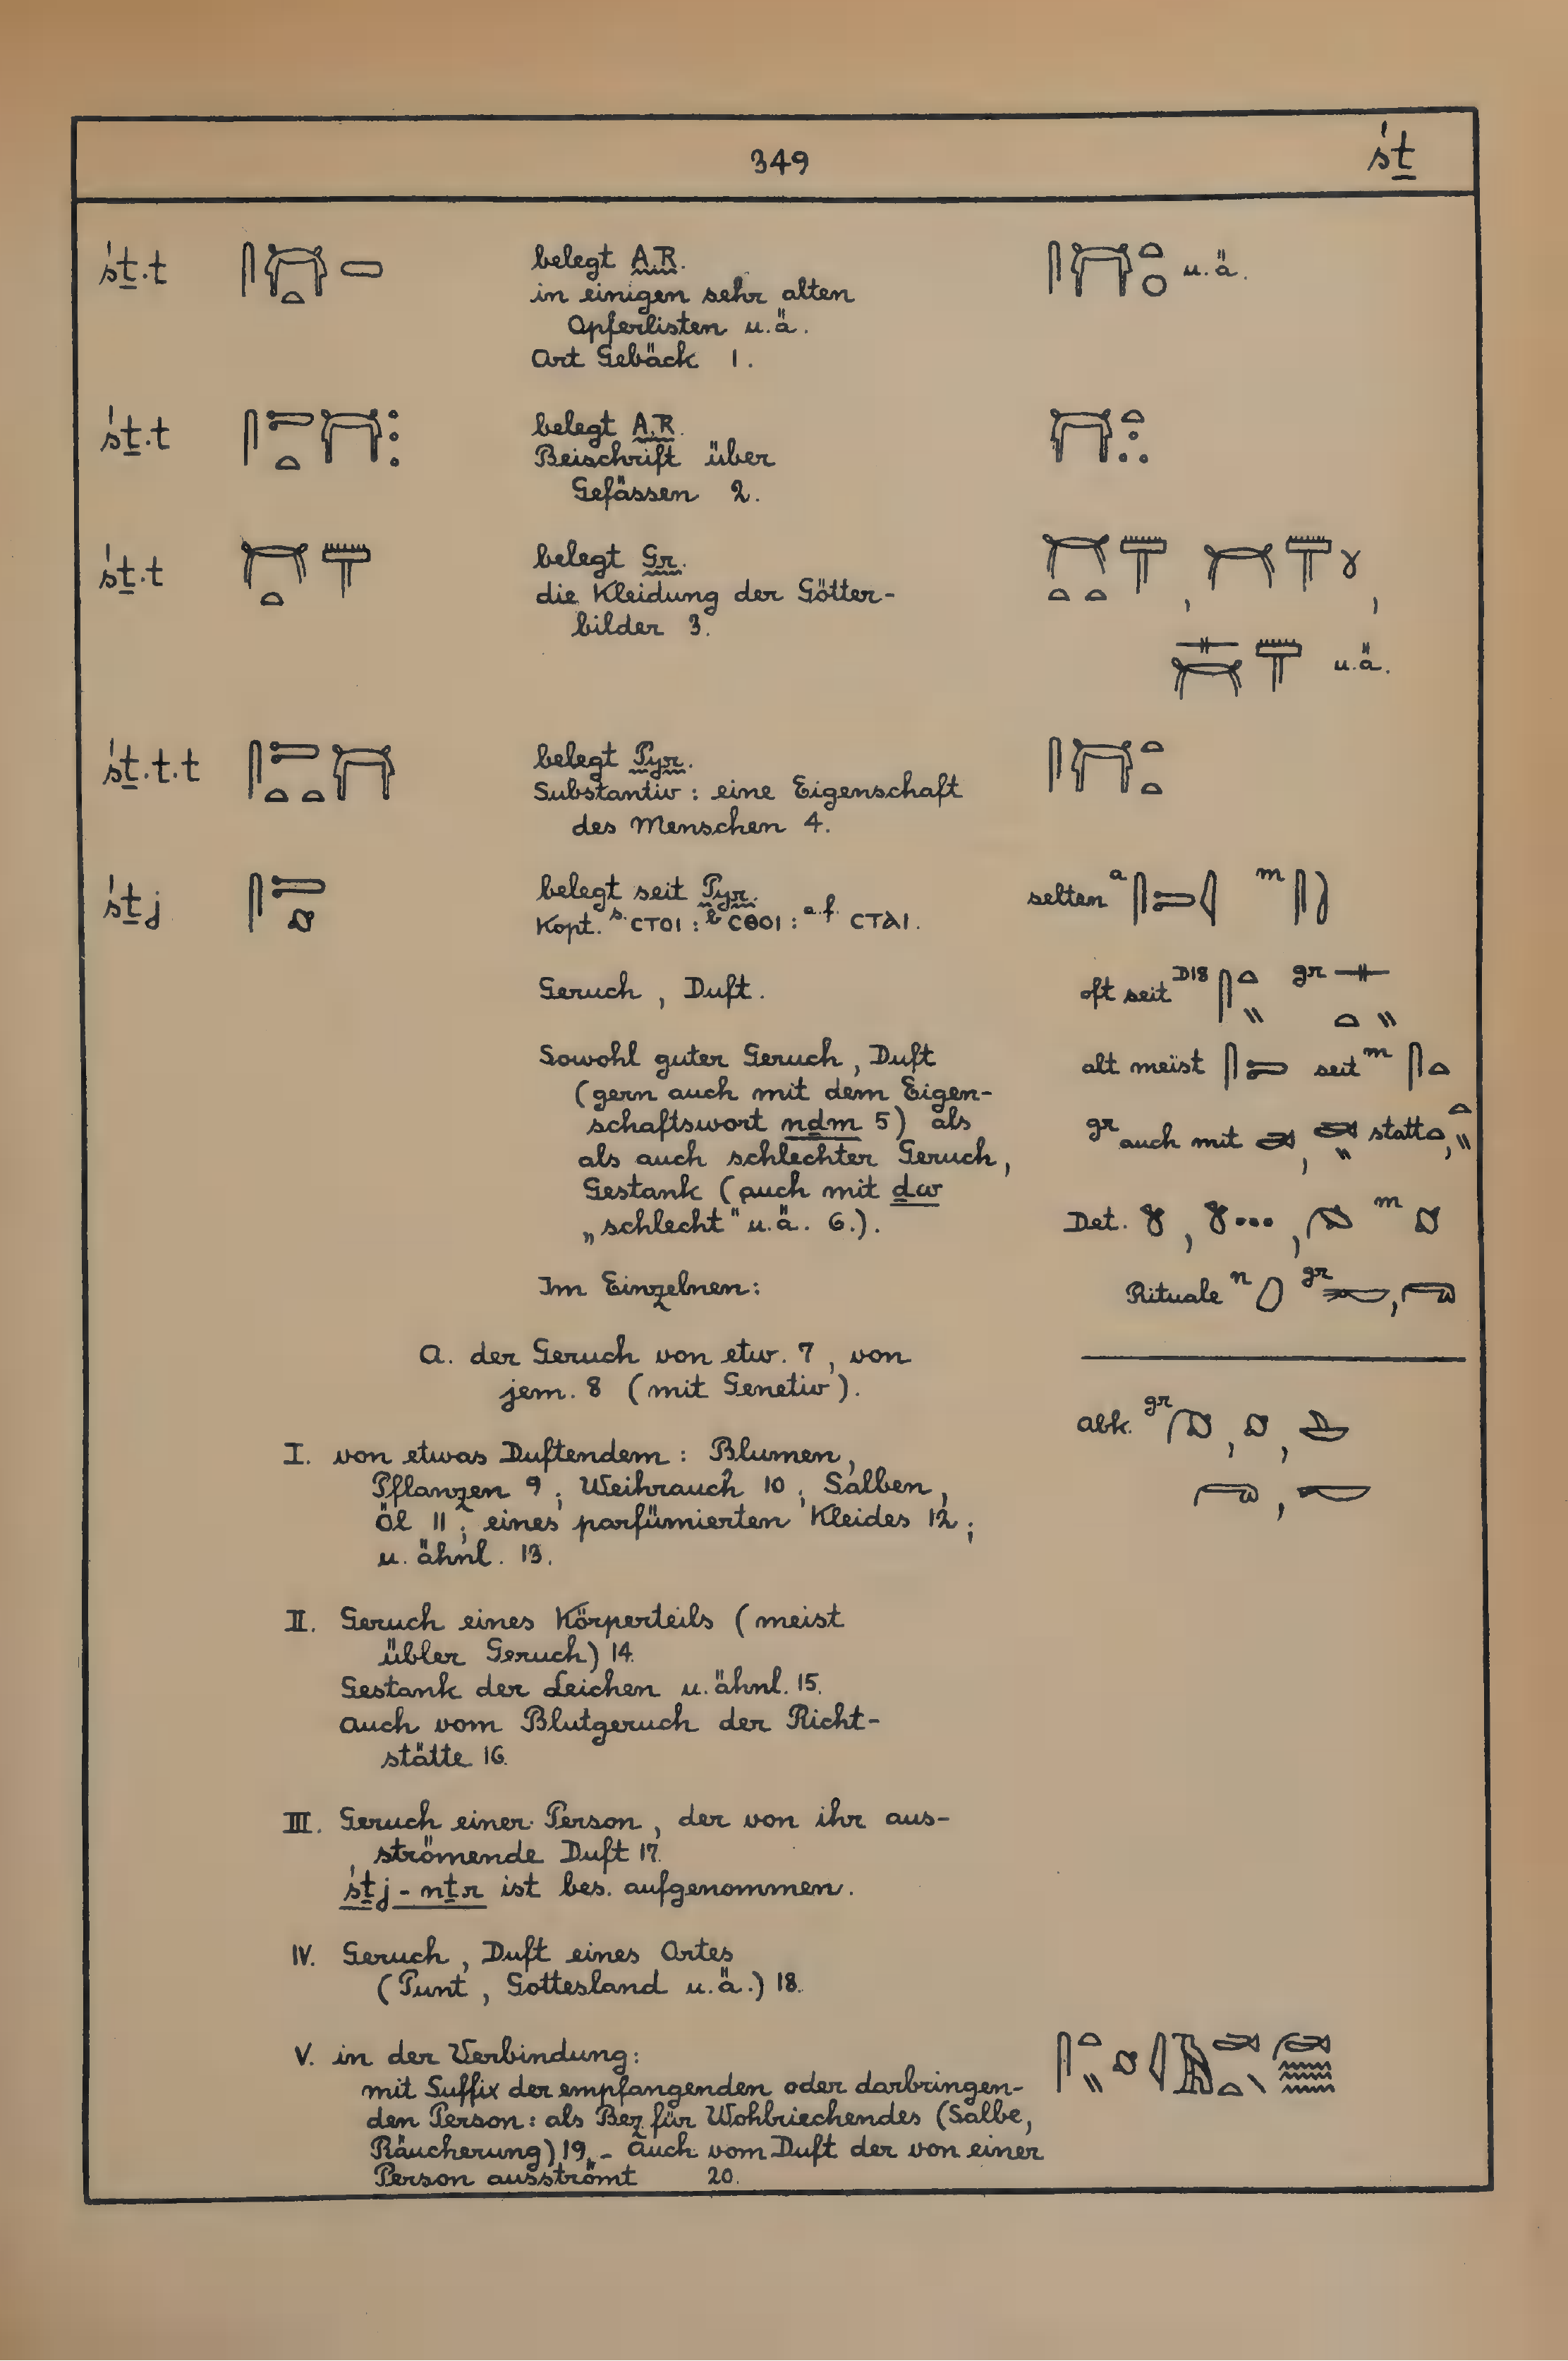 349
śṯ
śṯ.t
belegt A.R.
in einigen sehr alten
Opferlisten u.ä.
Art Gebäck 1.
u.ä.
śṯ.t
belegt A.R.
Beischrift über
Gefässen 2.
śṯ.t
belegt Gr.
die Kleidung der Götter-
bilder 3.
u.ä.
śṯ.t.t
belegt Pyr.
Substantiv : eine Eigenschaft
des Menschen 4.
śṯj
belegt seit Pyr.
Kopt. s. ⲤⲦⲞⲒ : b ⲤⲐⲞⲒ : a.f. ⲤⲦⲀⲒ.
selten a m
Geruch, Duft.
oft seit D18 gr
Sowohl guter Geruch, Duft
(gern auch mit dem Eigen-
schaftswort nḏm 5) als
als auch schlechter Geruch,
Gestank (auch mit ḏw
„schlecht" u.ä. 6.).
alt meist seit m
gr auch mit , statt ,
Det. , , m
Im Einzelnen:
Rituale n gr ,
A. der Geruch von etw. 7, von
jem. 8 (mit Genetiv).
Abk. gr , ,
,
I. von etwas Duftendem : Blumen,
Pflanzen 9; Weihrauch 10; Salben,
Öl 11; eines parfümierten Kleides 12;
u. ähnl. 13.
II. Geruch eines Körperteils (meist
übler Geruch) 14.
Gestank der Leichen u. ähnl. 15.
auch vom Blutgeruch der Richt-
stätte 16.
III. Geruch einer Person, der von ihr aus-
strömende Duft 17.
śṯj-nṯr ist bes. aufgenommen.
IV. Geruch, Duft eines Ortes
(Punt, Gottesland u.ä.) 18.
V. in der Verbindung:
mit Suffix der empfangenden oder darbringen-
den Person : als Bez. für Wohlriechendes (Salbe,
Räucherung) 19. – Auch vom Duft der von einer
Person ausströmt 20.